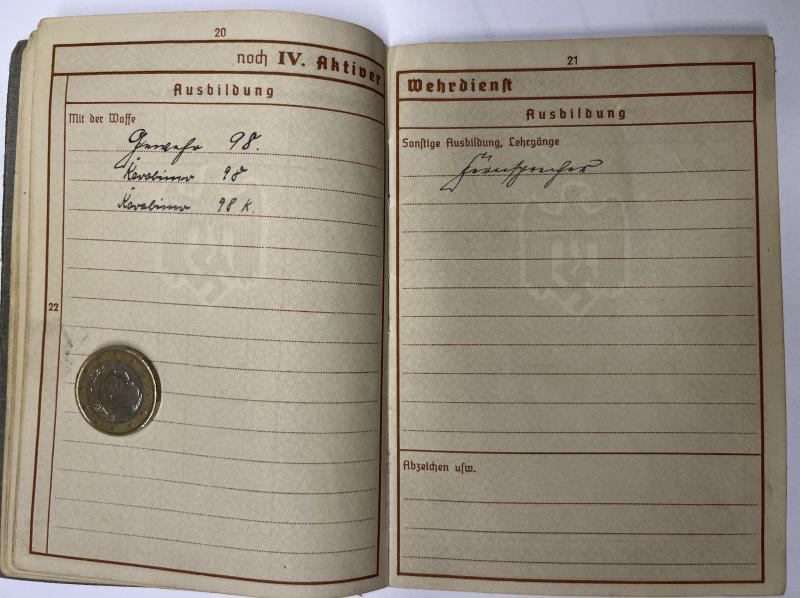 20
noch IV. Aktiver
Ausbildung
Mit der Waffe
Gewehr 98.
Karabiner 98
Karabiner 98 K.
22
21
Wehrdienst
Ausbildung
Sonstige Ausbildung, Lehrgänge
Fernsprecher
Abzeichen usw.